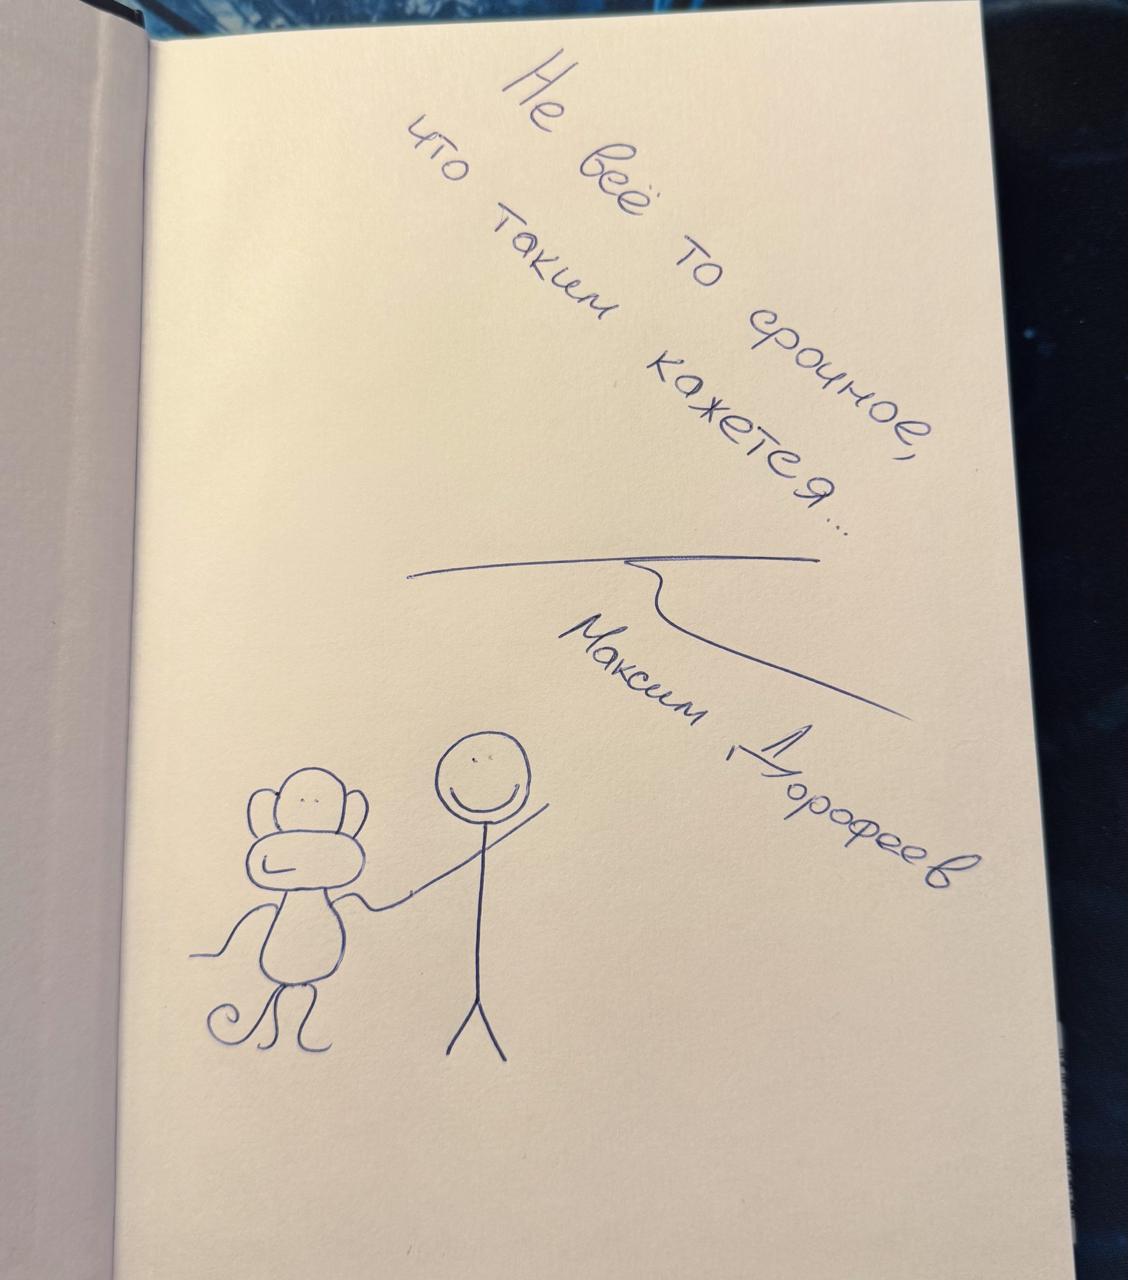 Не всё то срочное,
что таким кажется...
Максим Дорофеев